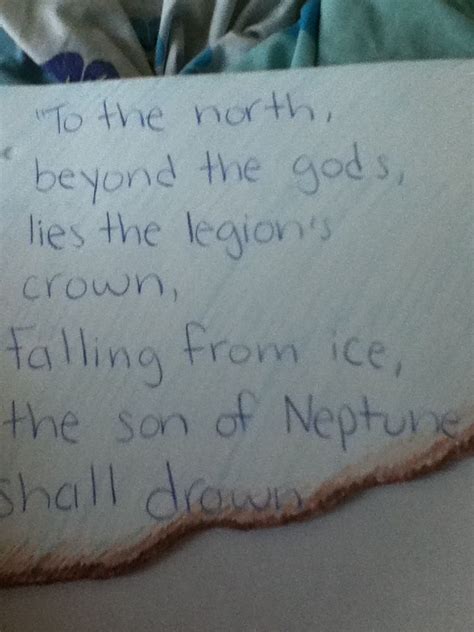 "To the north,
beyond the gods,
lies the legion's
crown,
Falling from ice,
the son of Neptune
shall drown